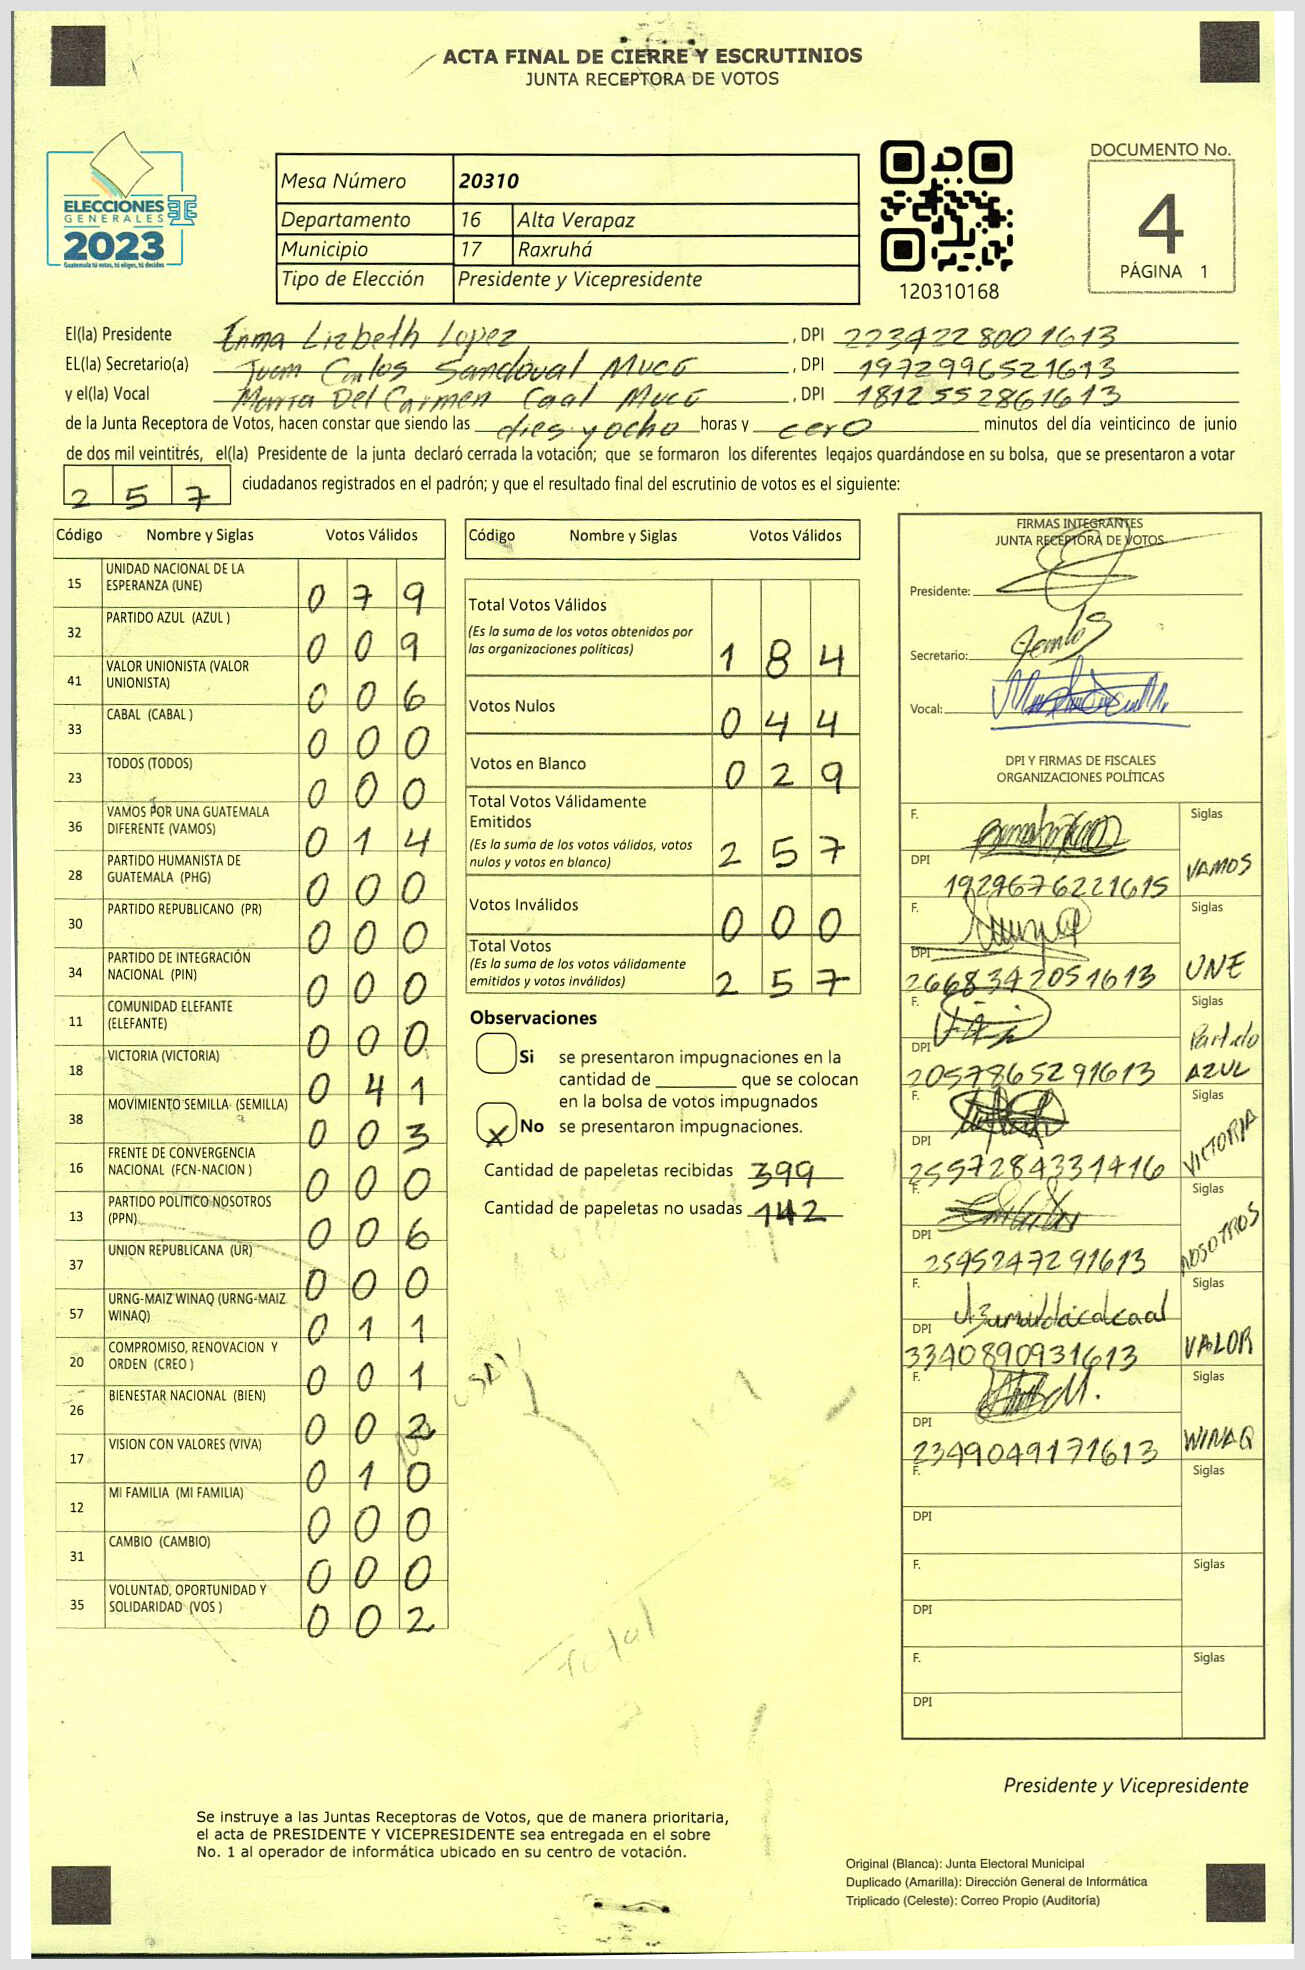 ACTA FINAL DE CIERRE Y ESCRUTINIOS
JUNTA RECEPTORA DE VOTOS
ELECCIONES
GENERALES
2023
Guatemala tú votas, tú eliges, tú decides
Mesa Número 20310
Departamento 16 Alta Verapaz
Municipio 17 Raxruhá
Tipo de Elección Presidente y Vicepresidente
120310168
DOCUMENTO No.
4
PÁGINA 1
El(la) Presidente Irma Lizbeth Lopez, DPI 2234228001613
EL(la) Secretario(a) Juan Carlos Sandoval Mucú, DPI 1972996521613
y el(la) Vocal Maria Del Carmen Caal Mucú, DPI 1812552861613
de la Junta Receptora de Votos, hacen constar que siendo las dies y ocho horas y cero minutos del día veinticinco de junio
de dos mil veintitrés, el(la) Presidente de la junta declaró cerrada la votación; que se formaron los diferentes legajos quardándose en su bolsa, que se presentaron a votar
257 ciudadanos registrados en el padrón; y que el resultado final del escrutinio de votos es el siguiente:
Código Nombre y Siglas Votos Válidos
15 UNIDAD NACIONAL DE LA
ESPERANZA (UNE) 079
32 PARTIDO AZUL (AZUL ) 009
41 VALOR UNIONISTA (VALOR
UNIONISTA) 006
33 CABAL (CABAL ) 000
23 TODOS (TODOS) 000
36 VAMOS POR UNA GUATEMALA
DIFERENTE (VAMOS) 014
28 PARTIDO HUMANISTA DE
GUATEMALA (PHG) 000
30 PARTIDO REPUBLICANO (PR) 000
34 PARTIDO DE INTEGRACIÓN
NACIONAL (PIN) 000
11 COMUNIDAD ELEFANTE
(ELEFANTE) 000
18 VICTORIA (VICTORIA) 041
38 MOVIMIENTO SEMILLA (SEMILLA) 003
16 FRENTE DE CONVERGENCIA
NACIONAL (FCN-NACION ) 000
13 PARTIDO POLITICO NOSOTROS
(PPN) 006
37 UNION REPUBLICANA (UR) 000
57 URNG-MAIZ WINAQ (URNG-MAIZ
WINAQ) 011
20 COMPROMISO, RENOVACION Y
ORDEN (CREO ) 001
26 BIENESTAR NACIONAL (BIEN) 002
17 VISION CON VALORES (VIVA) 010
12 MI FAMILIA (MI FAMILIA) 000
31 CAMBIO (CAMBIO) 000
35 VOLUNTAD, OPORTUNIDAD Y
SOLIDARIDAD (VOS ) 002
Código Nombre y Siglas Votos Válidos
Total Votos Válidos
(Es la suma de los votos obtenidos por
las organizaciones políticas) 184
Votos Nulos 044
Votos en Blanco 029
Total Votos Válidamente
Emitidos
(Es la suma de los votos válidos, votos
nulos y votos en blanco) 257
Votos Inválidos 000
Total Votos
(Es la suma de los votos válidamente
emitidos y votos inválidos) 257
Observaciones
Si se presentaron impugnaciones en la
cantidad de ________ que se colocan
en la bolsa de votos impugnados
X No se presentaron impugnaciones.
Cantidad de papeletas recibidas 399
Cantidad de papeletas no usadas 142
Total
FIRMAS INTEGRANTES
JUNTA RECEPTORA DE VOTOS
Presidente:
Secretario:
Vocal:
DPI Y FIRMAS DE FISCALES
ORGANIZACIONES POLÍTICAS
F. Siglas
DPI 1929676221615 VAMOS
F. Siglas
DPI 2668342051613 UNE
F. Siglas
DPI 2057865291613 Partido AZUL
F. Siglas
DPI 2557284331416 VICTORIA
F. Siglas
DPI 2545247291613 NOSOTROS
F. Siglas
DPI 3340890931613 VALOR
F. Siglas
DPI 2349049171613 WINAQ
F. Siglas
DPI
F. Siglas
DPI
F. Siglas
DPI
Presidente y Vicepresidente
Se instruye a las Juntas Receptoras de Votos, que de manera prioritaria,
el acta de PRESIDENTE Y VICEPRESIDENTE sea entregada en el sobre
No. 1 al operador de informática ubicado en su centro de votación.
Original (Blanca): Junta Electoral Municipal
Duplicado (Amarilla): Dirección General de Informática
Triplicado (Celeste): Correo Propio (Auditoría)